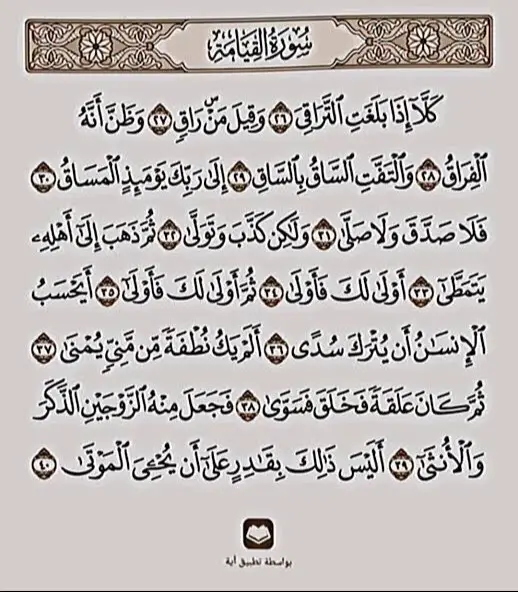 سُورَةُ القِيَامَةِ
كَلَّا إِذَا بَلَغَتِ التَّرَاقِيَ ٢٦ وَقِيلَ مَنْ ۜ رَاقٍ ٢٧ وَظَنَّ أَنَّهُ
الْفِرَاقُ ٢٨ وَالْتَفَّتِ السَّاقُ بِالسَّاقِ ٢٩ إِلَىٰ رَبِّكَ يَوْمَئِذٍ الْمَسَاقُ ٣٠
فَلَا صَدَّقَ وَلَا صَلَّىٰ ٣١ وَلَٰكِن كَذَّبَ وَتَوَلَّىٰ ٣٢ ثُمَّ ذَهَبَ إِلَىٰ أَهْلِهِۦ
يَتَمَطَّىٰ ٣٣ أَوْلَىٰ لَكَ فَأَوْلَىٰ ٣٤ ثُمَّ أَوْلَىٰ لَكَ فَأَوْلَىٰ ٣٥ أَيَحْسَبُ
الْإِنسَٰنُ أَن يُتْرَكَ سُدًى ٣٦ أَلَمْ يَكُ نُطْفَةً مِّن مَّنِيٍّ يُمْنَىٰ ٣٧
ثُمَّ كَانَ عَلَقَةً فَخَلَقَ فَسَوَّىٰ ٣٨ فَجَعَلَ مِنْهُ الزَّوْجَيْنِ الذَّكَرَ
وَالْأُنثَىٰ ٣٩ أَلَيْسَ ذَٰلِكَ بِقَٰدِرٍ عَلَىٰ أَن يُحْۦِيَ الْمَوْتَىٰ ٤٠
بواسطة تطبيق آية